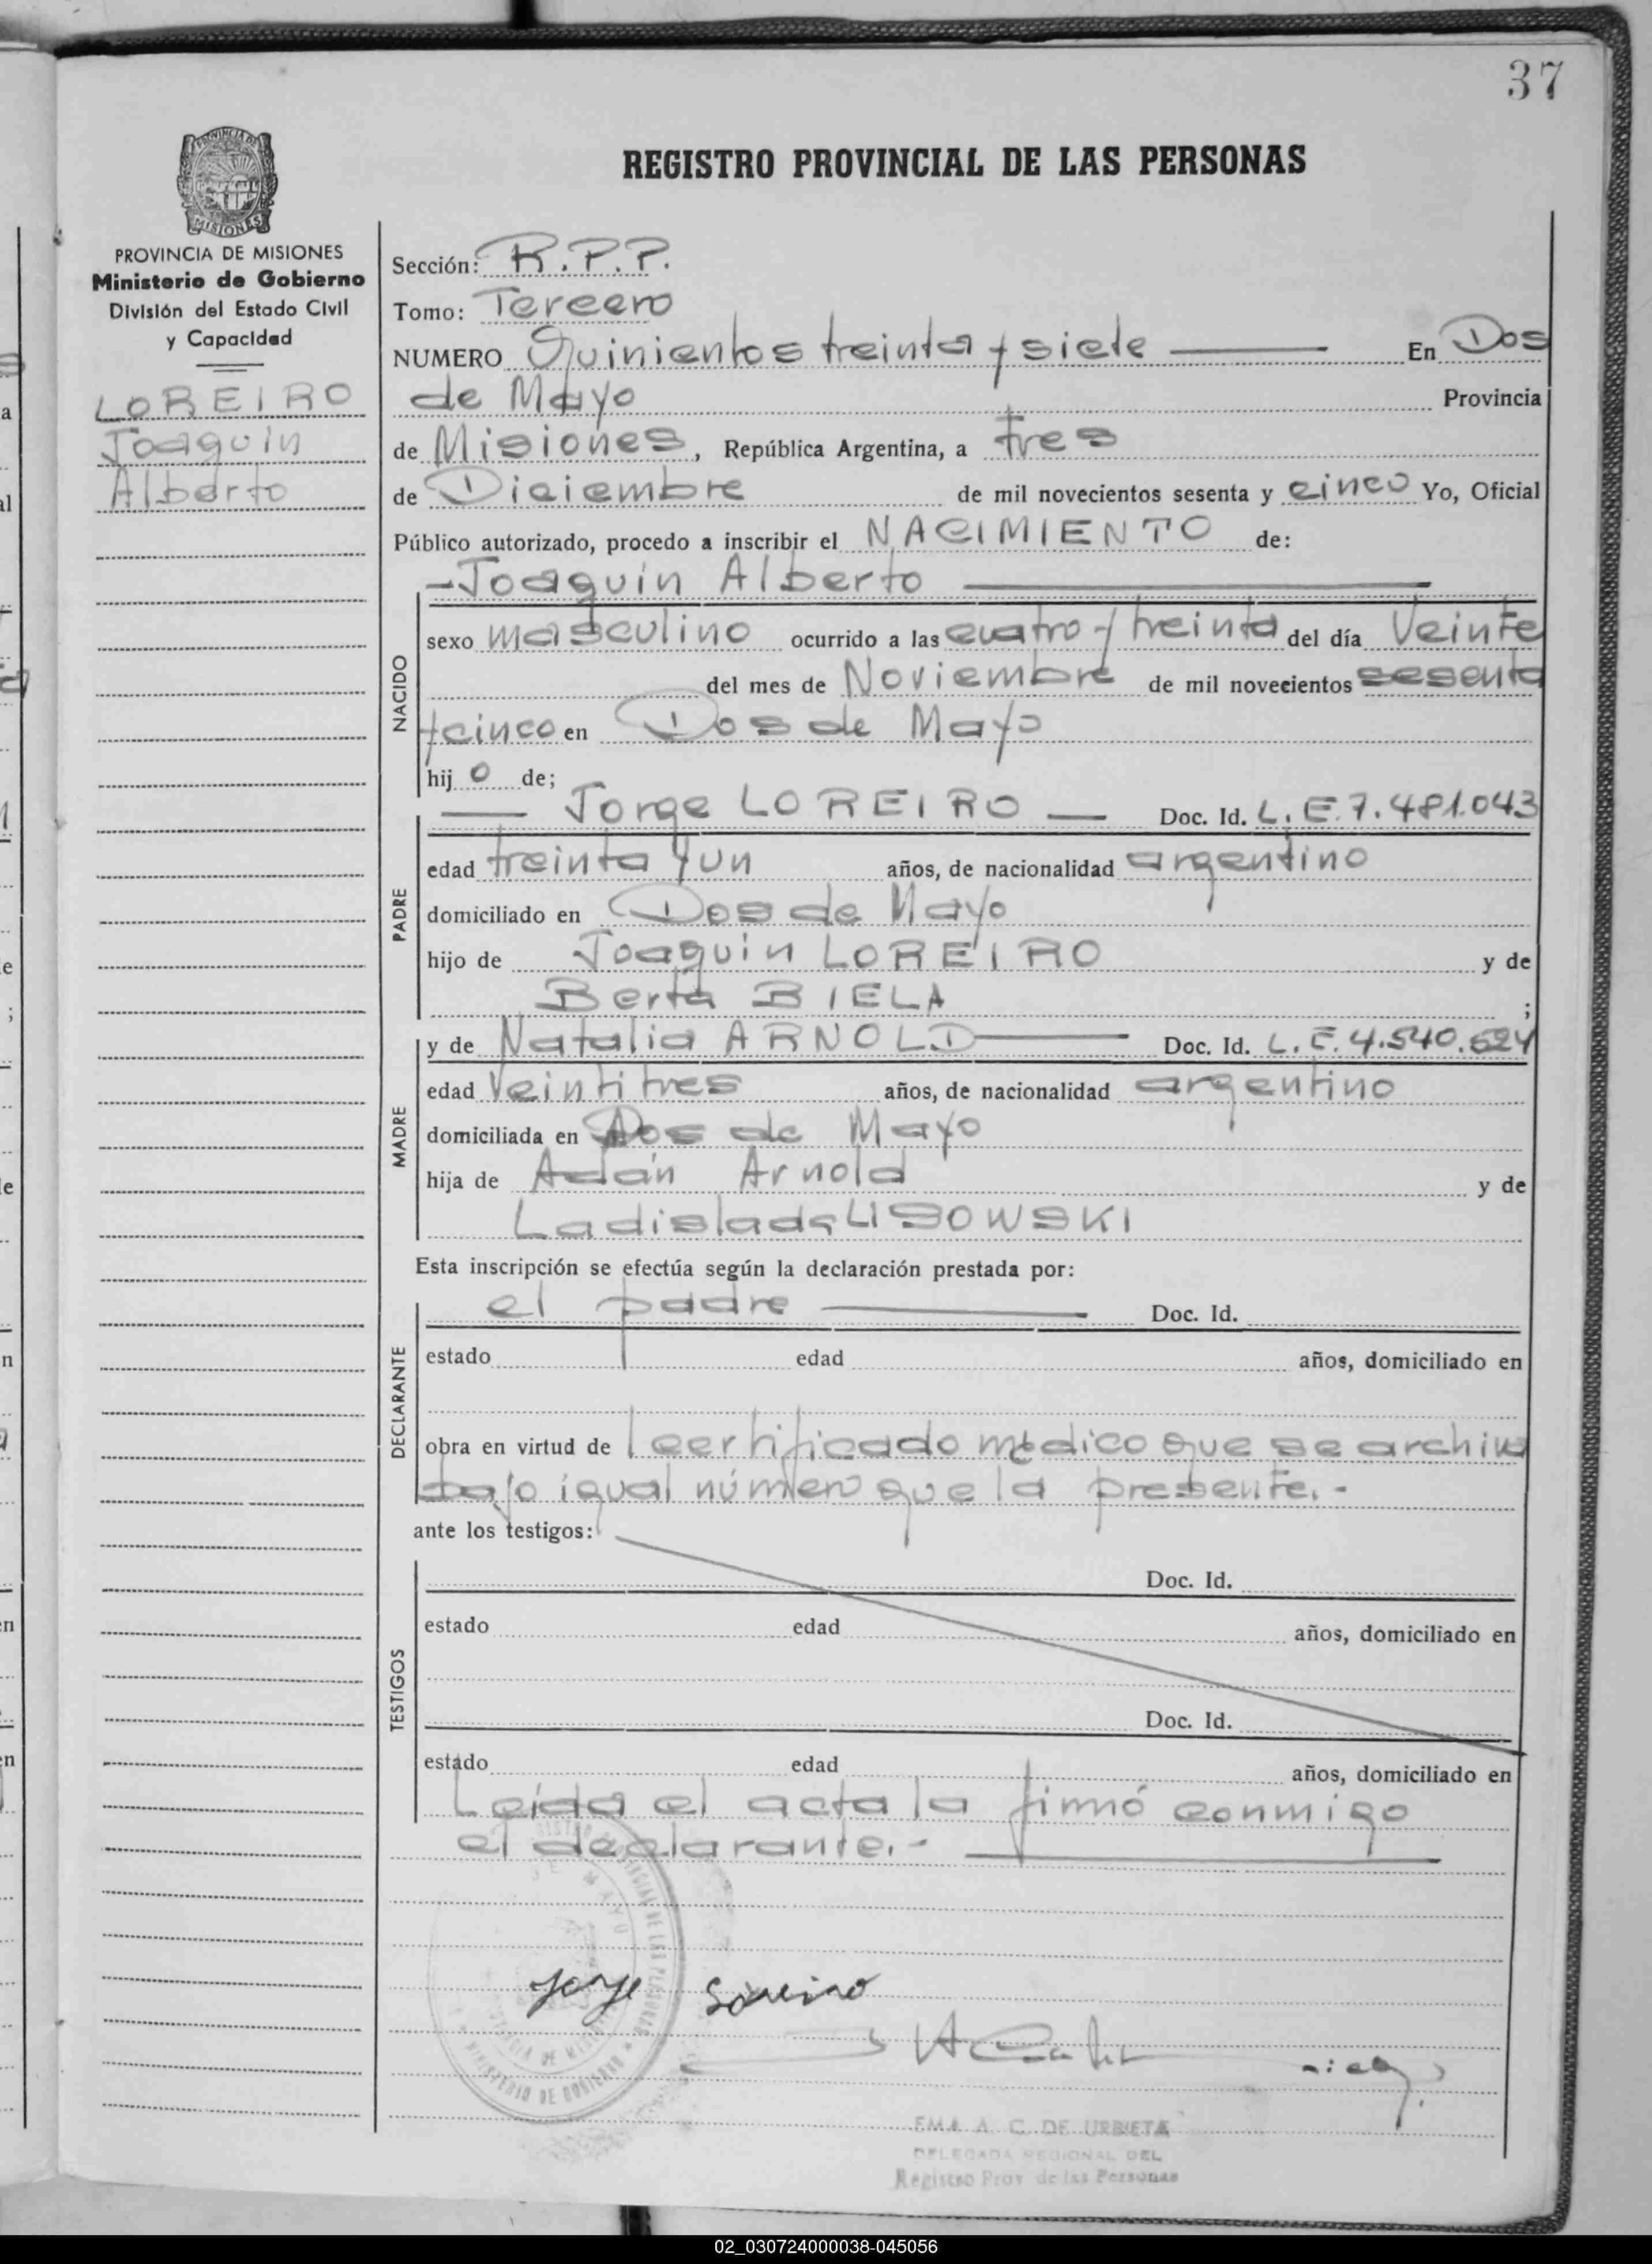 37
REGISTRO PROVINCIAL DE LAS PERSONAS
PROVINCIA DE MISIONES
Ministerio de Gobierno
División del Estado Civil
y Capacidad
LOREIRO
Joaquín
Alberto
Sección: R.P.P.
Tomo: Tercero
NUMERO Quinientos treinta y siete En Dos
de Mayo Provincia
de Misiones, República Argentina, a tres
de Diciembre de mil novecientos sesenta y cinco Yo, Oficial
Público autorizado, procedo a inscribir el NACIMIENTO de:
-Joaquín Alberto
NACIDO
sexo masculino ocurrido a las cuatro y treinta del día Veinte
del mes de Noviembre de mil novecientos sesenta
y cinco en Dos de Mayo
hij o de;
Jorge LOREIRO Doc. Id. L.E.7.481.043
PADRE
edad treinta y un años, de nacionalidad argentino
domiciliado en Dos de Mayo
hijo de Joaquín LOREIRO y de
Berta BIELA ;
MADRE
y de Natalia ARNOLD Doc. Id. L.E.4.540.624
edad Veintitres años, de nacionalidad argentino
domiciliada en Dos de Mayo
hija de Adán Arnold y de
Ladislada LISOWSKI
Esta inscripción se efectúa según la declaración prestada por:
DECLARANTE
el padre Doc. Id.
estado edad años, domiciliado en
obra en virtud de certificado médico que se archiva
bajo igual número que la presente.-
ante los testigos:
TESTIGOS
Doc. Id.
estado edad años, domiciliado en
Doc. Id.
estado edad años, domiciliado en
Leída el acta la firmó conmigo
el declarante.-
Jorge Loreiro
EMA A. C. DE URBIETA
DELEGADA REGIONAL DEL
Registro Prov de las Personas
02_030724000038-045056